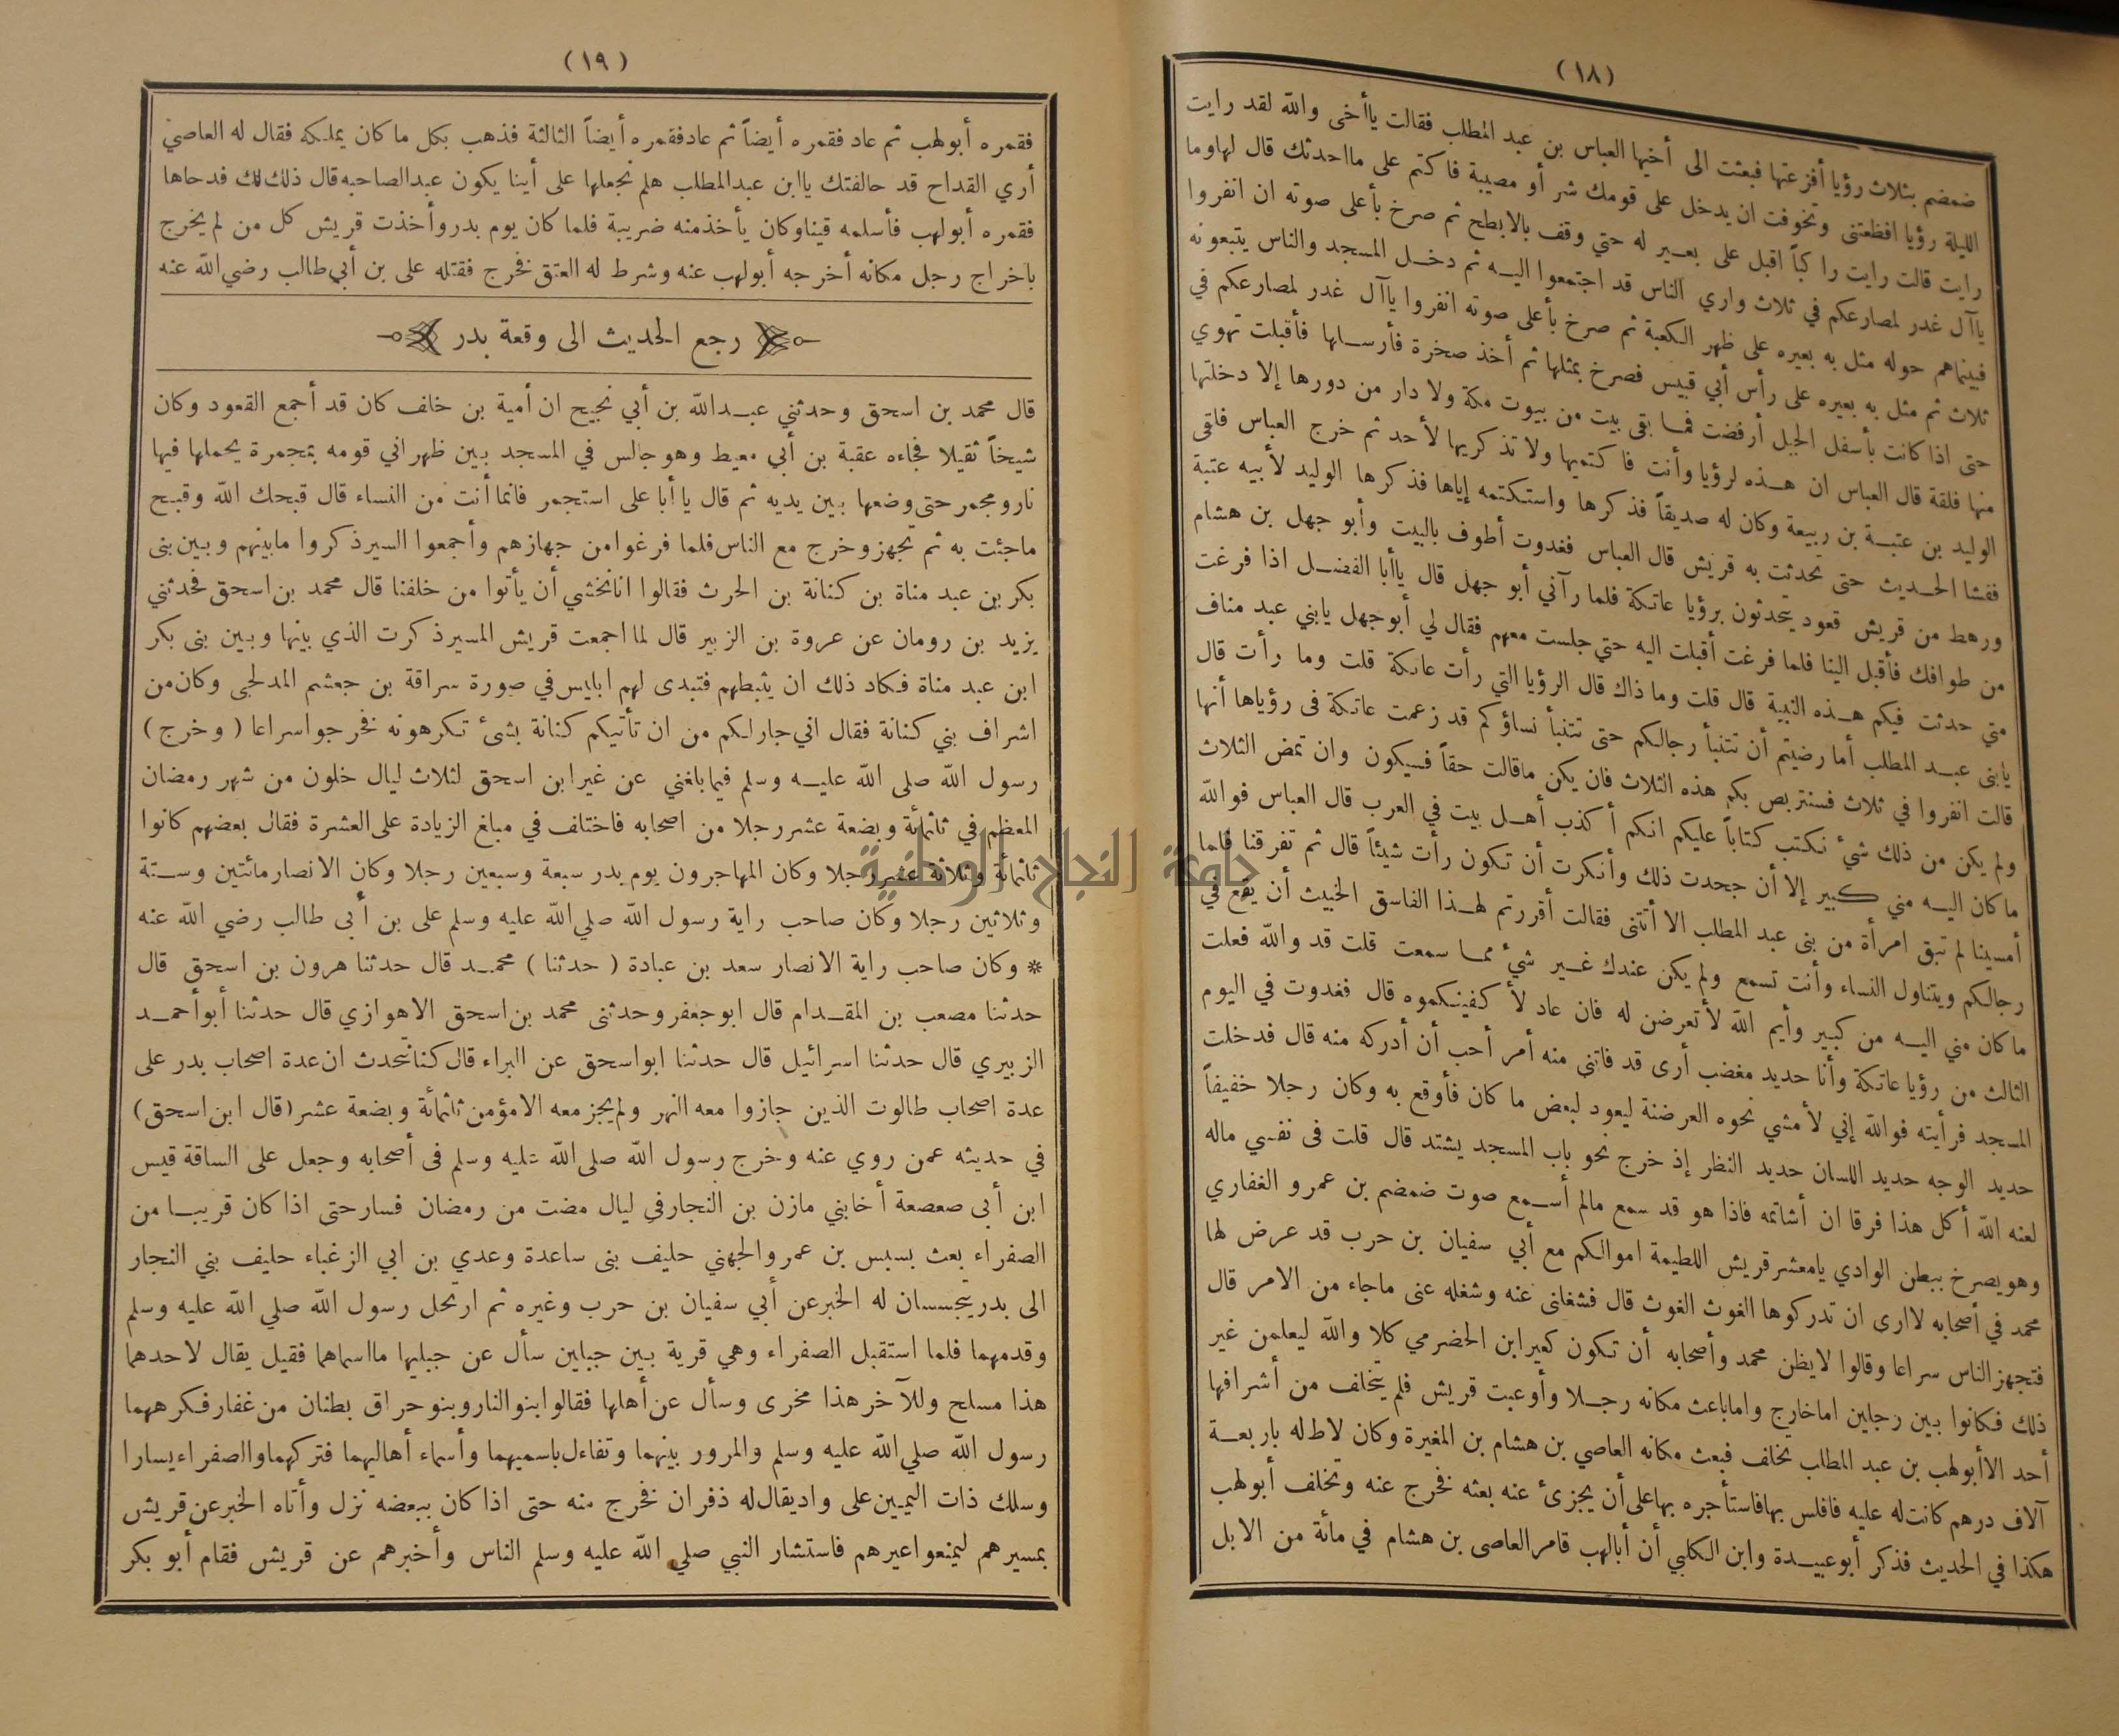 (١٨)
ضمضم بثلاث رؤيا أفزعتها فبعثت الى أخيها العباس بن عبد المطلب فقالت ياأخى والله لقد رايت
الليلة رؤيا افظعتنى وتخوفت ان يدخل على قومك شر أو مصيبة فاكتم على مااحدثك قال لهاوما
رايت قالت رايت راكباً اقبل على بعير له حتي وقف بالابطح ثم صرخ بأعلى صوته ان انفروا
ياآل غدر لمصارعكم في ثلاث واري الناس قد اجتمعوا اليه ثم دخل المسجد والناس يتبعونه
فبينماهم حوله مثل به بعيره على ظهر الكعبة ثم صرخ بأعلى صوته انفروا ياآل غدر لمصارعكم في
ثلاث ثم مثل به بعيره على رأس أبي قبيس فصرخ بمثلها ثم أخذ صخرة فأرسلها فأقبلت تهوي
حتى اذا كانت بأسفل الجبل أرفضت فما بقى بيت من بيوت مكة ولا دار من دورها إلا دخلتها
منها فلقة قال العباس ان هذه لرؤيا وأنت فاكتميها ولا تذكريها لأحد ثم خرج العباس فلقى
الوليد بن عتبة بن ربيعة وكان له صديقاً فذكرها واستكتمه إياها فذكرها الوليد لأبيه عتبة
ففشا الحديث حتى تحدثت به قريش قال العباس فغدوت أطوف بالبيت وأبو جهل بن هشام
ورهط من قريش قعود يتحدثون برؤيا عاتكة فلما رآني أبو جهل قال ياأبا الفضل اذا فرغت
من طوافك فأقبل الينا فلما فرغت أقبلت اليه حتي جلست معهم فقال لي أبوجهل يابني عبد مناف
متي حدثت فيكم هذه النبية قال قلت وما ذاك قال الرؤيا التي رأت عاتكة قلت وما رأت قال
يابنى عبد المطلب أما رضيتم أن تتنبأ رجالكم حتى تتنبأ نساؤكم قد زعمت عاتكة فى رؤياها أنها
قالت انفروا في ثلاث فسنتربص بكم هذه الثلاث فان يكن ماقالت حقاً فسيكون وان تمض الثلاث
ولم يكن من ذلك شئ نكتب كتاباً عليكم انكم أكذب أهل بيت في العرب قال العباس فوالله
ماكان اليه مني كبير إلا أن جحدت ذلك وأنكرت أن تكون رأت شيئاً قال ثم تفرقنا فلما
أمسينا لم تبق امرأة من بنى عبد المطلب الا أتتنى فقالت أقررتم لهذا الفاسق الخبيث أن يقع في
رجالكم ويتناول النساء وأنت تسمع ولم يكن عندك غير شئ مما سمعت قلت قد والله فعلت
ماكان مني اليه من كبير وأيم الله لأتعرضن له فان عاد لأكفينكموه قال فغدوت في اليوم
الثالث من رؤيا عاتكة وأنا حديد مغضب أرى قد فاتنى منه أمر أحب أن أدركه منه قال فدخلت
المسجد فرأيته فوالله إني لأمشي نحوه العرضنة ليعود لبعض ما كان فأوقع به وكان رجلا خفيفاً
حديد الوجه حديد اللسان حديد النظر إذ خرج نحو باب المسجد يشتد قال قلت فى نفسي ماله
لعنه الله أكل هذا فرقا ان أشاتمه فاذا هو قد سمع مالم أسمع صوت ضمضم بن عمرو الغفاري
وهويصرخ ببطن الوادي يامعشرقريش اللطيمة اموالكم مع أبي سفيان بن حرب قد عرض لها
محمد في أصحابه لاارى ان تدركوها الغوث الغوث قال فشغلنى عنه وشغله عنى ماجاء من الامر قال
فتجهز الناس سراعا وقالوا لايظن محمد وأصحابه أن تكون كعيرابن الحضرمي كلا والله ليعلمن غير
ذلك فكانوا بين رجلين اماخارج واماباعث مكانه رجلا وأوعبت قريش فلم يتخلف من أشرافها
أحد الاأبولهب بن عبد المطلب تخلف فبعث مكانه العاصي بن هشام بن المغيرة وكان لاط له باربعة
آلاف درهم كانت له عليه فافلس بهافاستأجره بهاعلى أن يجزئ عنه بعثه فخرج عنه وتخلف أبولهب
هكذا في الحديث فذكر أبوعبيدة وابن الكلبي أن أبالهب قامر العاصى بن هشام في مائة من الابل
(١٩)
فقمره أبولهب ثم عاد فقمره أيضاً ثم عادفقمره أيضاً الثالثة فذهب بكل ماكان يملكه فقال له العاصي
أري القداح قد حالفتك ياابن عبدالمطلب هلم نجعلها على أينا يكون عبدالصاحبه قال ذلك لك فدحاها
فقمره أبولهب فأسلمه قيناوكان يأخذمنه ضريبة فلما كان يوم بدروأخذت قريش كل من لم يخرج
باخراج رجل مكانه أخرجه أبولهب عنه وشرط له العتق فخرج فقتله على بن أبي طالب رضي الله عنه
رجع الحديث الى وقعة بدر
قال محمد بن اسحق وحدثني عبدالله بن أبي نجيح ان أمية بن خلف كان قد أجمع القعود وكان
شيخاً ثقيلا فجاءه عقبة بن أبي معيط وهو جالس في المسجد بين ظهراني قومه بمجمرة يحملها فيها
نارومجمر حتى وضعها بين يديه ثم قال ياأبا على استجمر فانما أنت من النساء قال قبحك الله وقبح
ماجئت به ثم تجهز وخرج مع الناس فلما فرغوامن جهازهم وأجمعوا السيرذكروا مابينهم وبين بنى
بكر بن عبد مناة بن كنانة بن الحرث فقالوا انانخشي أن يأتوا من خلفنا قال محمد بن اسحق فحدثني
يزيد بن رومان عن عروة بن الزبير قال لما اجمعت قريش المسيرذكرت الذي بينها وبين بنى بكر
ابن عبد مناة فكاد ذلك ان يثبطهم فتبدى لهم ابليس في صورة سراقة بن جعشم المدلجى وكان من
اشراف بني كنانة فقال اني جارلكم من ان تأتيكم كنانة بشئ تكرهونه فخرجواسراعا (وخرج)
رسول الله صلى الله عليه وسلم فيمابلغني عن غيرابن اسحق لثلاث ليال خلون من شهر رمضان
المعظم في ثلثمائة وبضعة عشررجلا من اصحابه فاختلف في مبلغ الزيادة على العشرة فقال بعضهم كانوا
ثلثمائة وثلاثة عشررجلا وكان المهاجرون يوم بدر سبعة وسبعين رجلا وكان الانصارمائتين وستة
وثلاثين رجلا وكان صاحب راية رسول الله صلي الله عليه وسلم على بن أبى طالب رضي الله عنه
* وكان صاحب راية الانصار سعد بن عبادة (حدثنا) محمد قال حدثنا هرون بن اسحق قال
حدثنا مصعب بن المقدام قال ابوجعفر وحدثنى محمد بن اسحق الاهوازي قال حدثنا أبوأحمد
الزبيري قال حدثنا اسرائيل قال حدثنا ابواسحق عن البراء قال كنانتحدث ان عدة اصحاب بدر على
عدة اصحاب طالوت الذين جازوا معه النهر ولم يجز معه الامؤمن ثلثمائة وبضعة عشر (قال ابن اسحق)
في حديثه عمن روي عنه وخرج رسول الله صلى الله عليه وسلم فى أصحابه وجعل على الساقة قيس
ابن أبى صعصعة أخابني مازن بن النجارفي ليال مضت من رمضان فسارحتى اذا كان قريبا من
الصفراء بعث بسبس بن عمروالجهني حليف بنى ساعدة وعدي بن ابي الزغباء حليف بني النجار
الى بدر يتجسسان له الخبرعن أبي سفيان بن حرب وغيره ثم ارتحل رسول الله صلي الله عليه وسلم
وقدمهما فلما استقبل الصفراء وهي قرية بين جبلين سأل عن جبليها مااسماهما فقيل يقال لاحدهما
هذا مسلح وللآخر هذا مخرى وسأل عن أهلها فقالوابنوالناروبنوحراق بطنان من غفارفكرههما
رسول الله صلي الله عليه وسلم والمرور بينهما وتفاءل باسميهما وأسماء أهاليهما فتركهماوالصفراءيسارا
وسلك ذات اليمين على واديقال له ذفران فخرج منه حتى اذا كان ببعضه نزل وأتاه الخبرعن قريش
بمسيرهم ليمنعواعيرهم فاستشار النبي صلي الله عليه وسلم الناس وأخبرهم عن قريش فقام أبو بكر
جامعة النجاح الوطنية